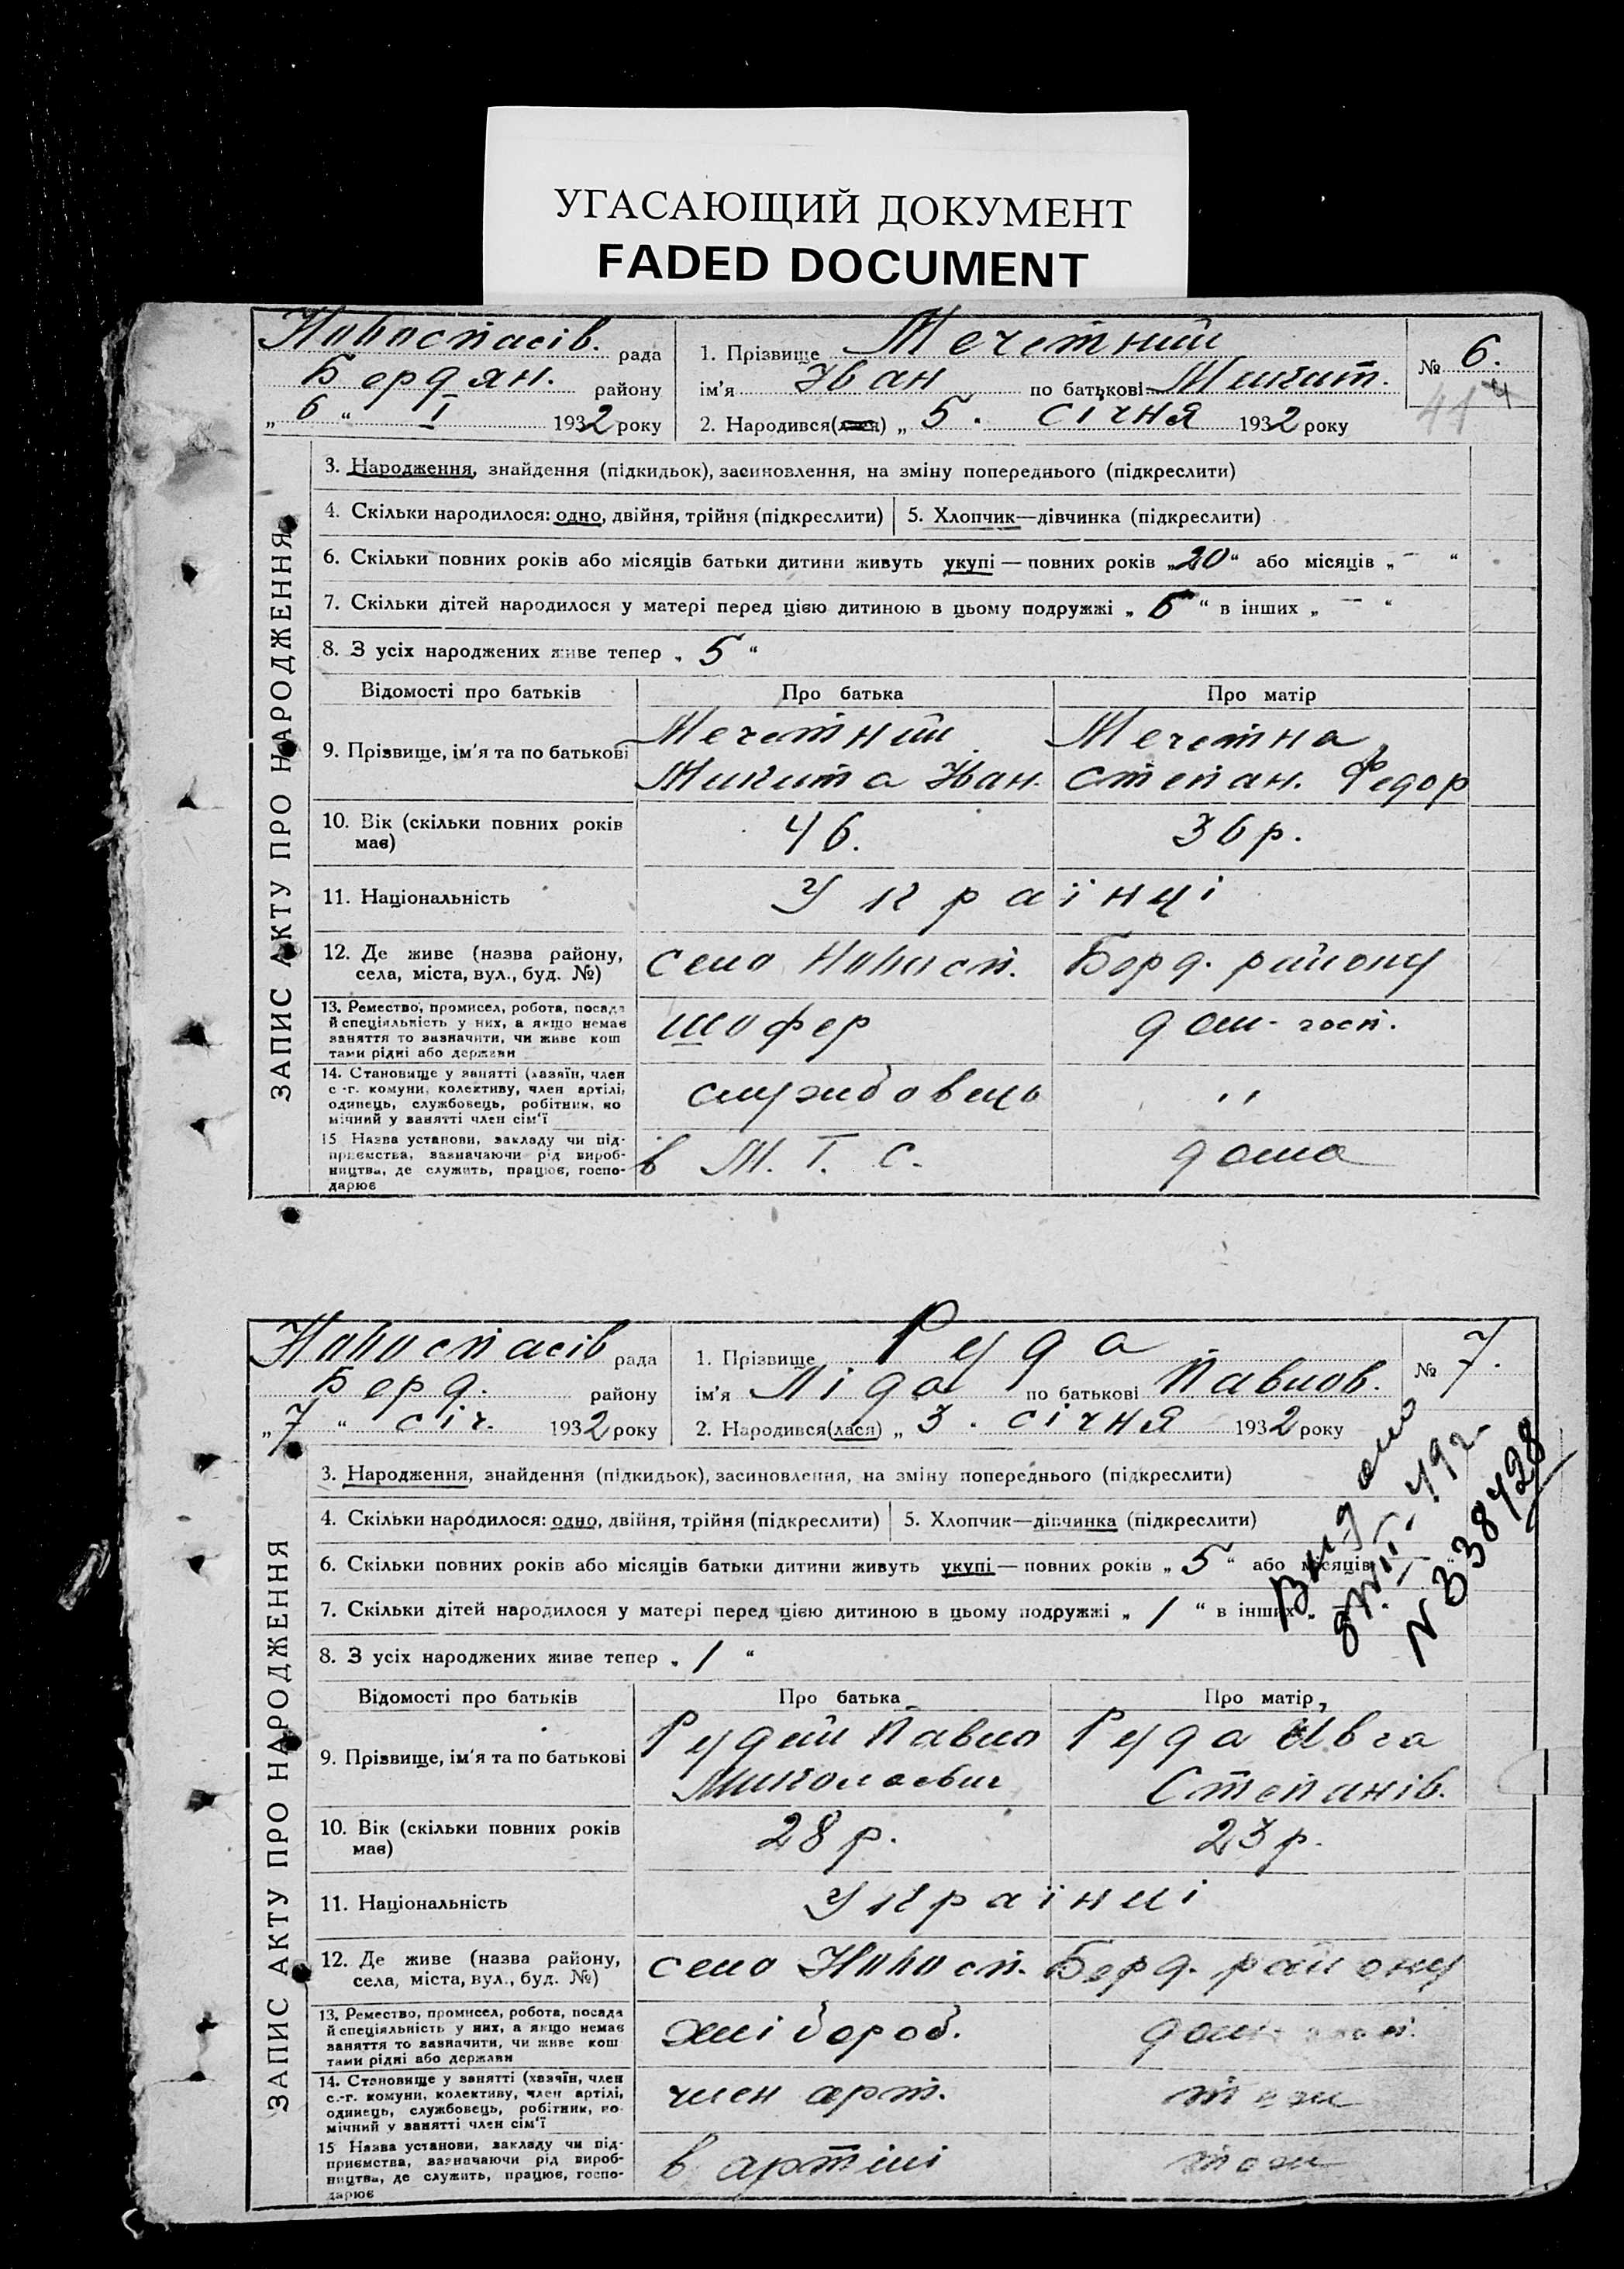 УГАСАЮЩИЙ ДОКУМЕНТ
FADED DOCUMENT
Новоспасів. рада
Бердян. району
„ 6 “ I 1932 року
1. Прізвище Мечетний
ім'я Іван по батькові Микит.
2. Народився(лася) „ 5. січня 1932 року
№ 6.
ЗАПИС АКТУ ПРО НАРОДЖЕННЯ
3. Народження, знайдення (підкидьок), засиновлення, на зміну попереднього (підкреслити)
4. Скільки народилося: одно, двійня, трійня (підкреслити) 5. Хлопчик—дівчинка (підкреслити)
6. Скільки повних років або місяців батьки дитини живуть укупі — повних років „20“ або місяців „ — “
7. Скільки дітей народилося у матері перед цією дитиною в цьому подружжі „ “ в інших „ — “
8. З усіх народжених живе тепер „ 5 “
Відомості про батьків Про батька Про матір
9. Прізвище, ім'я та по батькові Мечетний Мечетна
Микита Іван. Степан. Федор
10. Вік (скільки повних років має) 46. 36 р.
11. Національність Українці
12. Де живе (назва району, села, міста, вул., буд. №) село Новосп. Берд. району
13. Ремество, промисел, робота, посада
й спеціяльність у них, а якщо немає
заняття то зазначити, чи живе кош
тами рідні або держави
шофер дом. госп.
14. Становище у занятті (хазяїн, член
с.-г. комуни, колективу, член артілі,
одинець, службовець, робітник, по
мічний у занятті член сім'ї
службовець "
15 Назва установи, закладу чи під-
приємства, зазначаючи рід вироб-
ництва, де служить, працює, госпо-
дарює
в М. Т. С. дома
Новоспасів рада
Берд. району
„ 7 “ січ. 1932 року
1. Прізвище Руда
ім'я Ліда по батькові Павлов.
2. Народився(лася) „ 3. січня 1932 року
№ 7.
Видано
N 338428
ЗАПИС АКТУ ПРО НАРОДЖЕННЯ
3. Народження, знайдення (підкидьок), засиновлення, на зміну попереднього (підкреслити)
4. Скільки народилося: одно, двійня, трійня (підкреслити) 5. Хлопчик—дівчинка (підкреслити)
6. Скільки повних років або місяців батьки дитини живуть укупі — повних років „ 5 “ або місяців
7. Скільки дітей народилося у матері перед цією дитиною в цьому подружжі „ 1 “ в інших „
8. З усіх народжених живе тепер „ 1 “
Відомості про батьків Про батька Про матір
9. Прізвище, ім'я та по батькові Рудий Павло Руда Ївга
Миколаєвич Степанів.
10. Вік (скільки повних років має) 28 р. 23 р.
11. Національність Українці
12. Де живе (назва району, села, міста, вул., буд. №) село Новосп. Берд. району
13. Ремество, промисел, робота, посада
й спеціяльність у них, а якщо немає
заняття то зазначити, чи живе кош
тами рідні або держави
хлібороб. дом.
14. Становище у занятті (хазяїн, член
с.-г. комуни, колективу, член артілі,
одинець, службовець, робітник, по-
мічний у занятті член сім'ї
член арт. теж
15 Назва установи, закладу чи під-
приємства, зазначаючи рід вироб-
ництва, де служить, працює, госпо-
дарює
в артілі